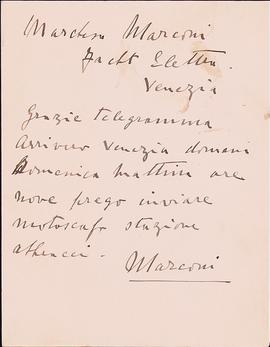 Marchesa Marconi
Yacht Elettra
Venezia
Grazie telegramma
Arrivero Venezia domani
Domenica mattina ore
nove prego inviare
motoscafo stazione
Marconi